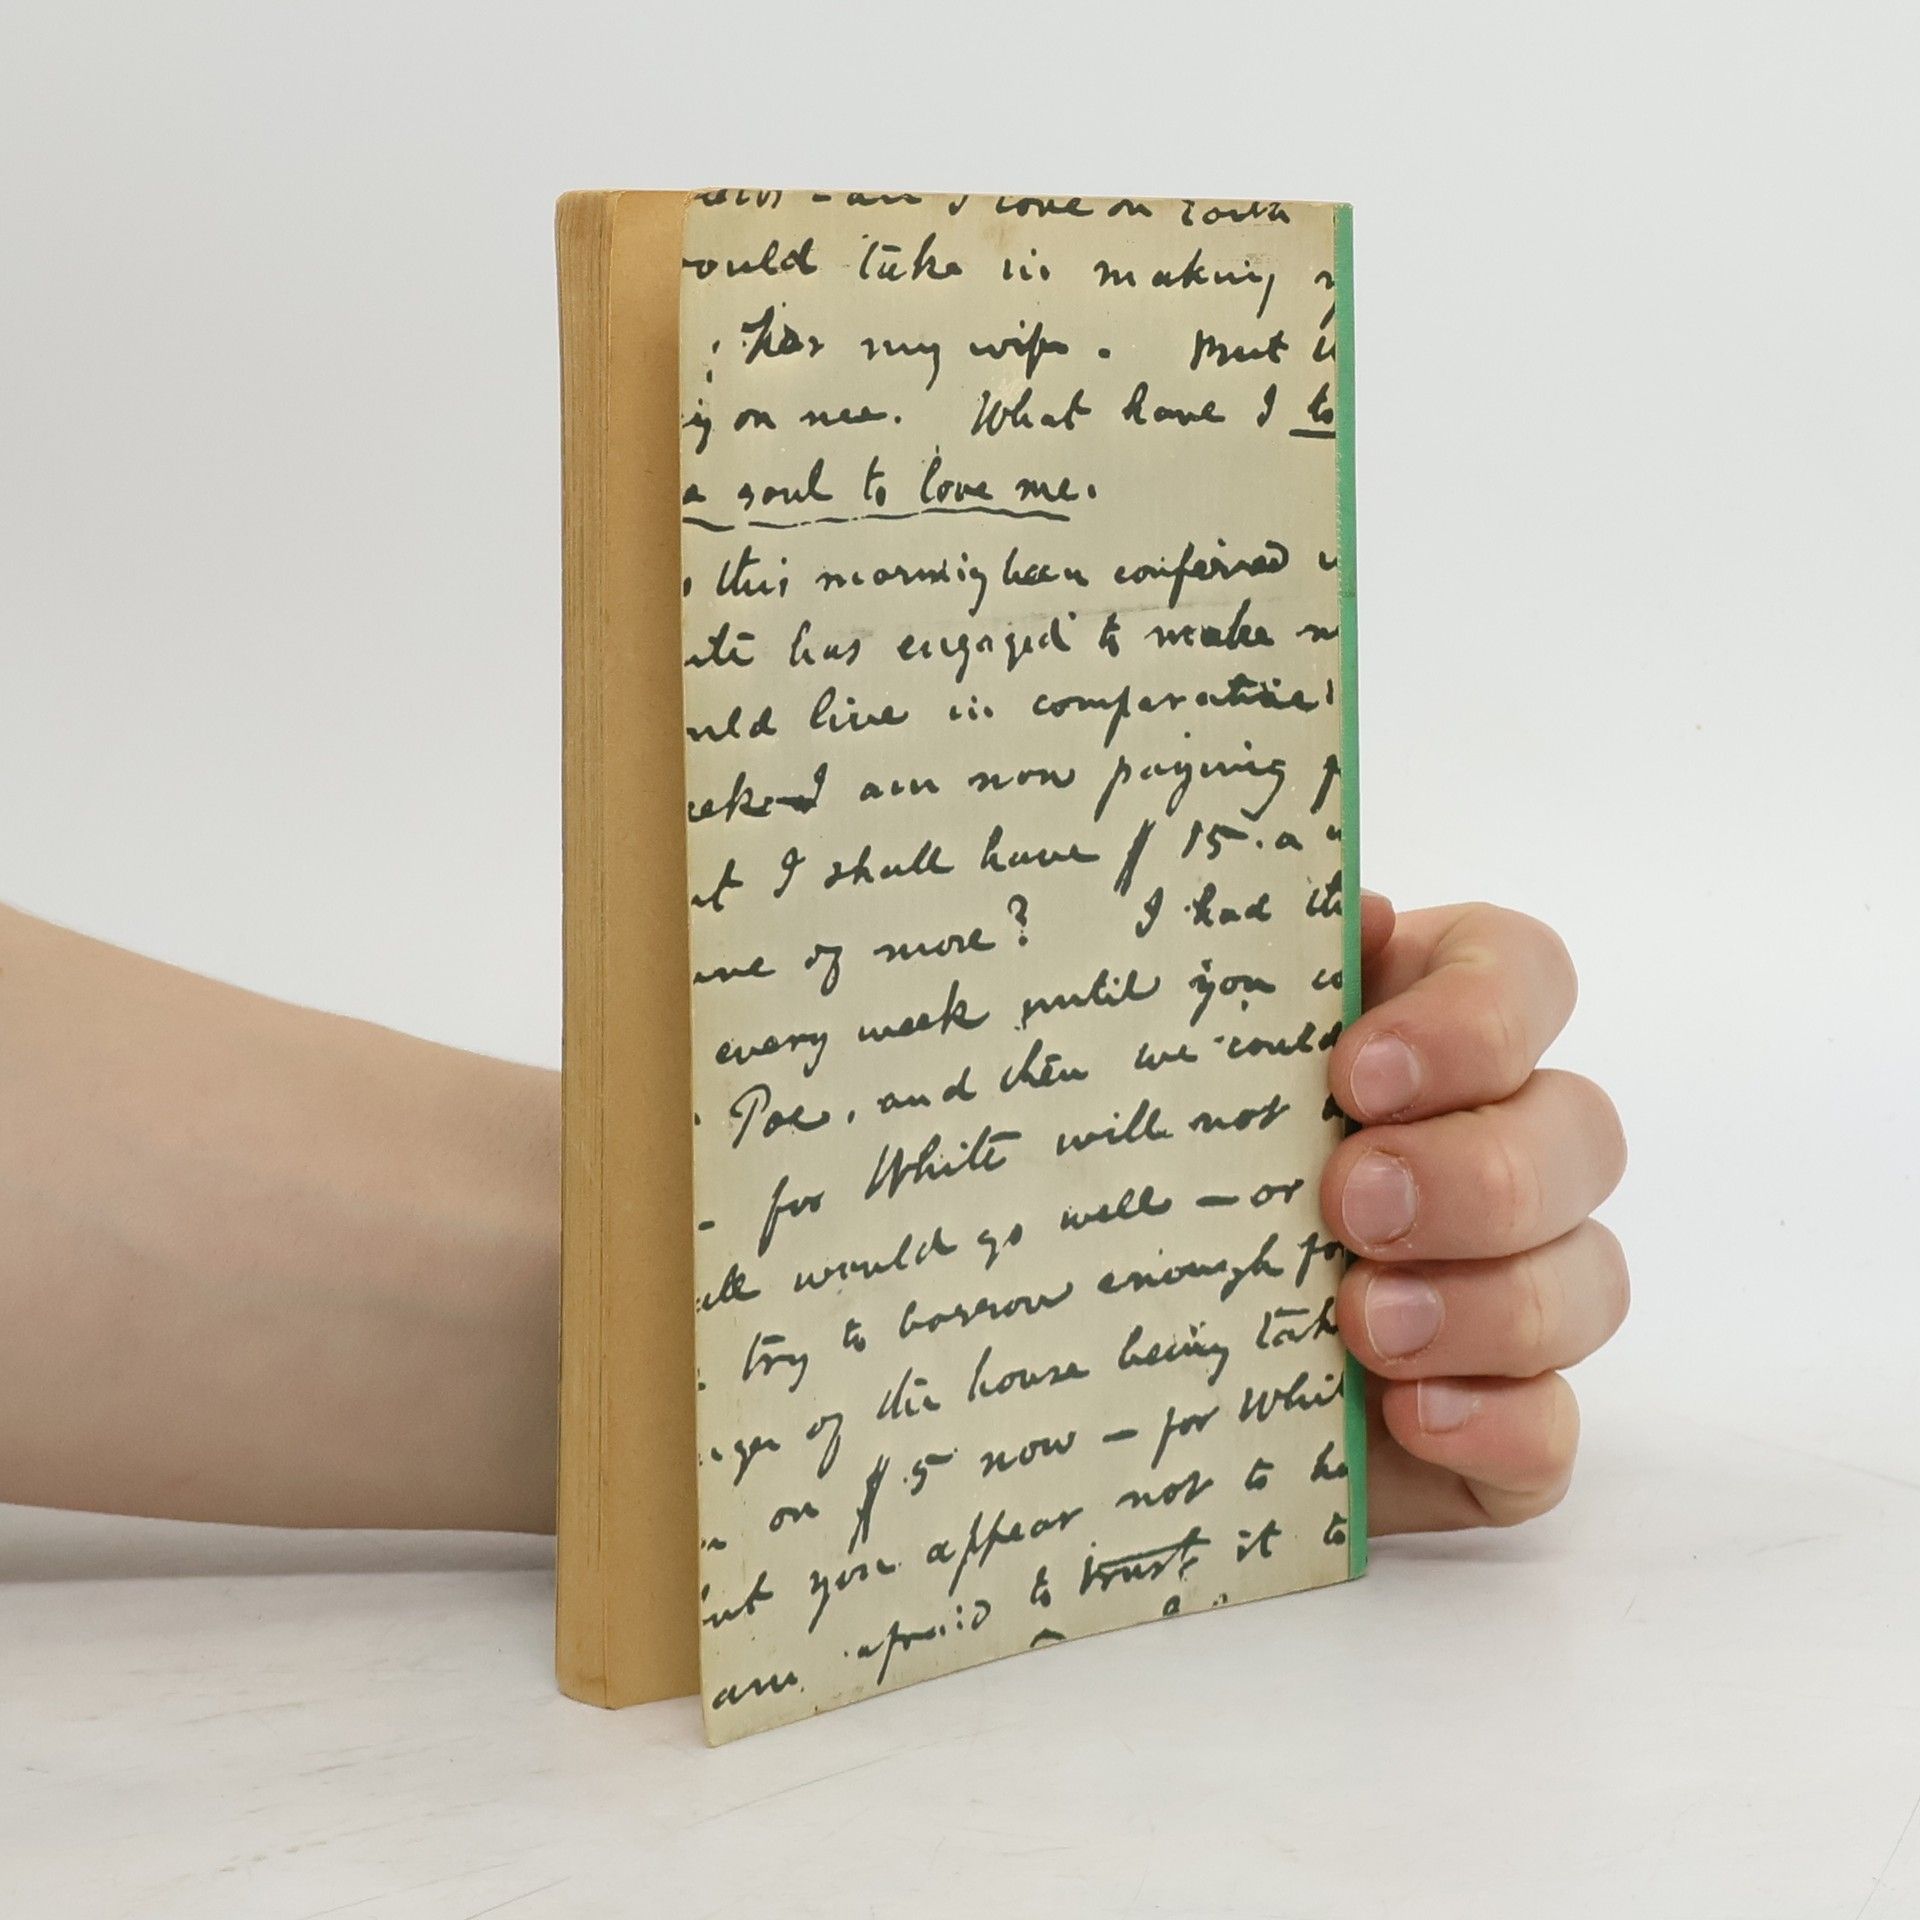 I love on Earth
ould take in making
my wife. But
on me. What have I to
a soul to love me.
this morning been conferred
ite has engaged to make
uld live in comparative
eek—I am now paying
ut I shall have $ 15. a
of more? I had
every week until you
Poe, and then we could
- for White will not
would go well — or
try to borrow enough fo
nger of the house being tak
on $ 5 now — for Whit
but you appear not to ha
am afraid to trust it to